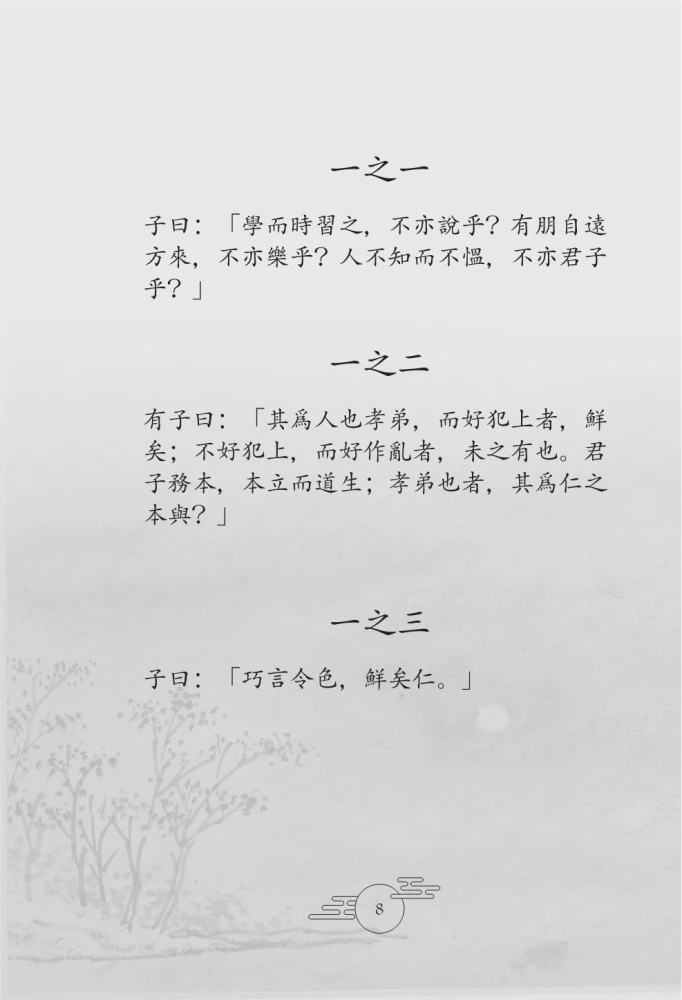 一之一
子曰：「學而時習之，不亦說乎？有朋自遠
方來，不亦樂乎？人不知而不慍，不亦君子
乎？」
一之二
有子曰：「其爲人也孝弟，而好犯上者，鮮
矣；不好犯上，而好作亂者，未之有也。君
子務本，本立而道生；孝弟也者，其爲仁之
本與？」
一之三
子曰：「巧言令色，鮮矣仁。」
8